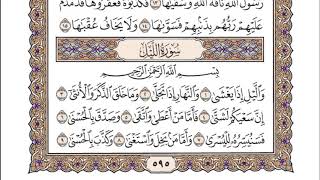 رَسُولُ ٱللَّهِ نَاقَةَ ٱللَّهِ وَسُقْيَٰهَا ١٣ فَكَذَّبُوهُ فَعَقَرُوهَا فَدَمْدَمَ
عَلَيْهِمْ رَبُّهُم بِذَنۢبِهِمْ فَسَوَّىٰهَا ١٤ وَلَا يَخَافُ عُقْبَٰهَا ١٥
سُورَةُ ٱللَّيْلِ
بِسْمِ ٱللَّهِ ٱلرَّحْمَٰنِ ٱلرَّحِيمِ
وَٱلَّيْلِ إِذَا يَغْشَىٰ ١ وَٱلنَّهَارِ إِذَا تَجَلَّىٰ ٢ وَمَا خَلَقَ ٱلذَّكَرَ وَٱلْأُنثَىٰٓ ٣
إِنَّ سَعْيَكُمْ لَشَتَّىٰ ٤ فَأَمَّا مَنْ أَعْطَىٰ وَٱتَّقَىٰ ٥ وَصَدَّقَ بِٱلْحُسْنَىٰ ٦
فَسَنُيَسِّرُهُۥ لِلْيُسْرَىٰ ٧ وَأَمَّا مَنۢ بَخِلَ وَٱسْتَغْنَىٰ ٨ وَكَذَّبَ بِٱلْحُسْنَىٰ ٩
٥٩٥